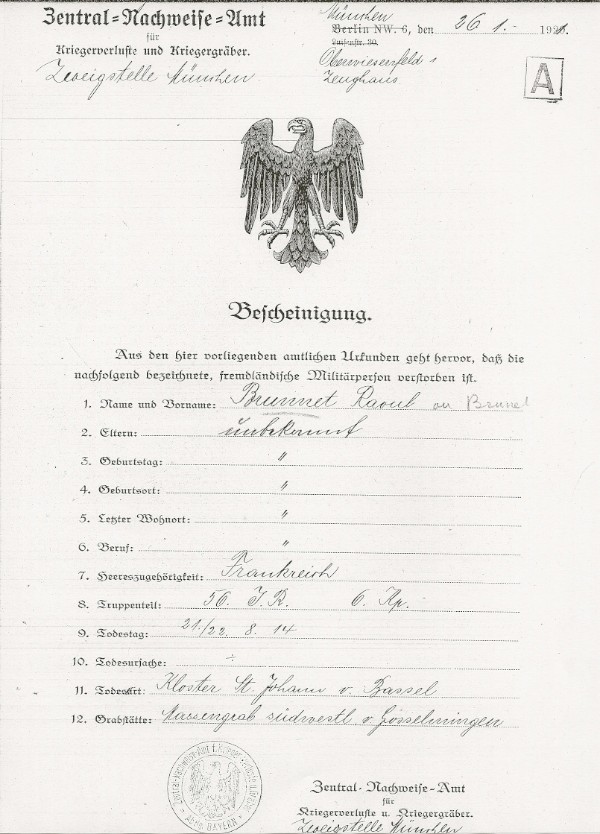 Zentral-Nachweise-Amt
für
Kriegerverluste und Kriegergräber.
Zweigstelle München
München
Berlin NW. 6, den 26 1.- 1921.
Oberwiesenfeld
Zeughaus
A
Bescheinigung.
Aus den hier vorliegenden amtlichen Urkunden geht hervor, daß die
nachfolgend bezeichnete, fremdländische Militärperson verstorben ist.
1. Name und Vorname: Brunnet Raoul ou Brunet
2. Eltern: unbekannt
3. Geburtstag: "
4. Geburtsort: "
5. Letzter Wohnort: "
6. Beruf: "
7. Heereszugehörigkeit: Frankreich
8. Truppenteil: 56. J.R. 6. Kp.
9. Todestag: 21./22. 8. 14
10. Todesursache: ÷
11. Todesort: Kloster St. Johann v. Bassel
12. Grabstätte: Massengrab südwestl. v. Gosselmingen
Zentral-Nachweise-Amt
für
Kriegerverluste u. Kriegergräber.
Zweigstelle München